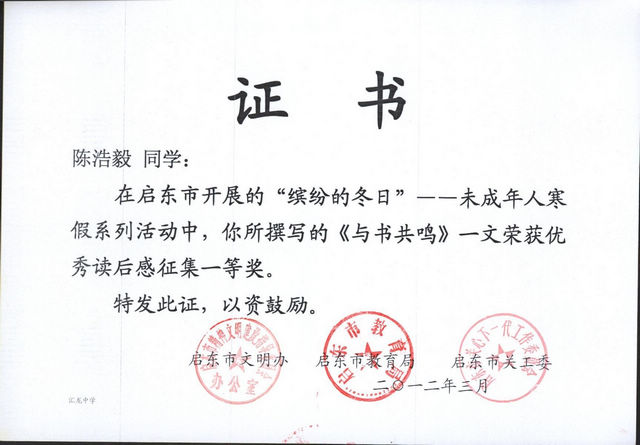 证 书
陈浩毅 同学：
在启东市开展的“缤纷的冬日”——未成年人寒
假系列活动中，你所撰写的《与书共鸣》一文荣获优
秀读后感征集一等奖。
特发此证，以资鼓励。
启东市文明办 启东市教育局 启东市关工委
二〇一二年三月
汇龙中学
启东市教育局
办公室